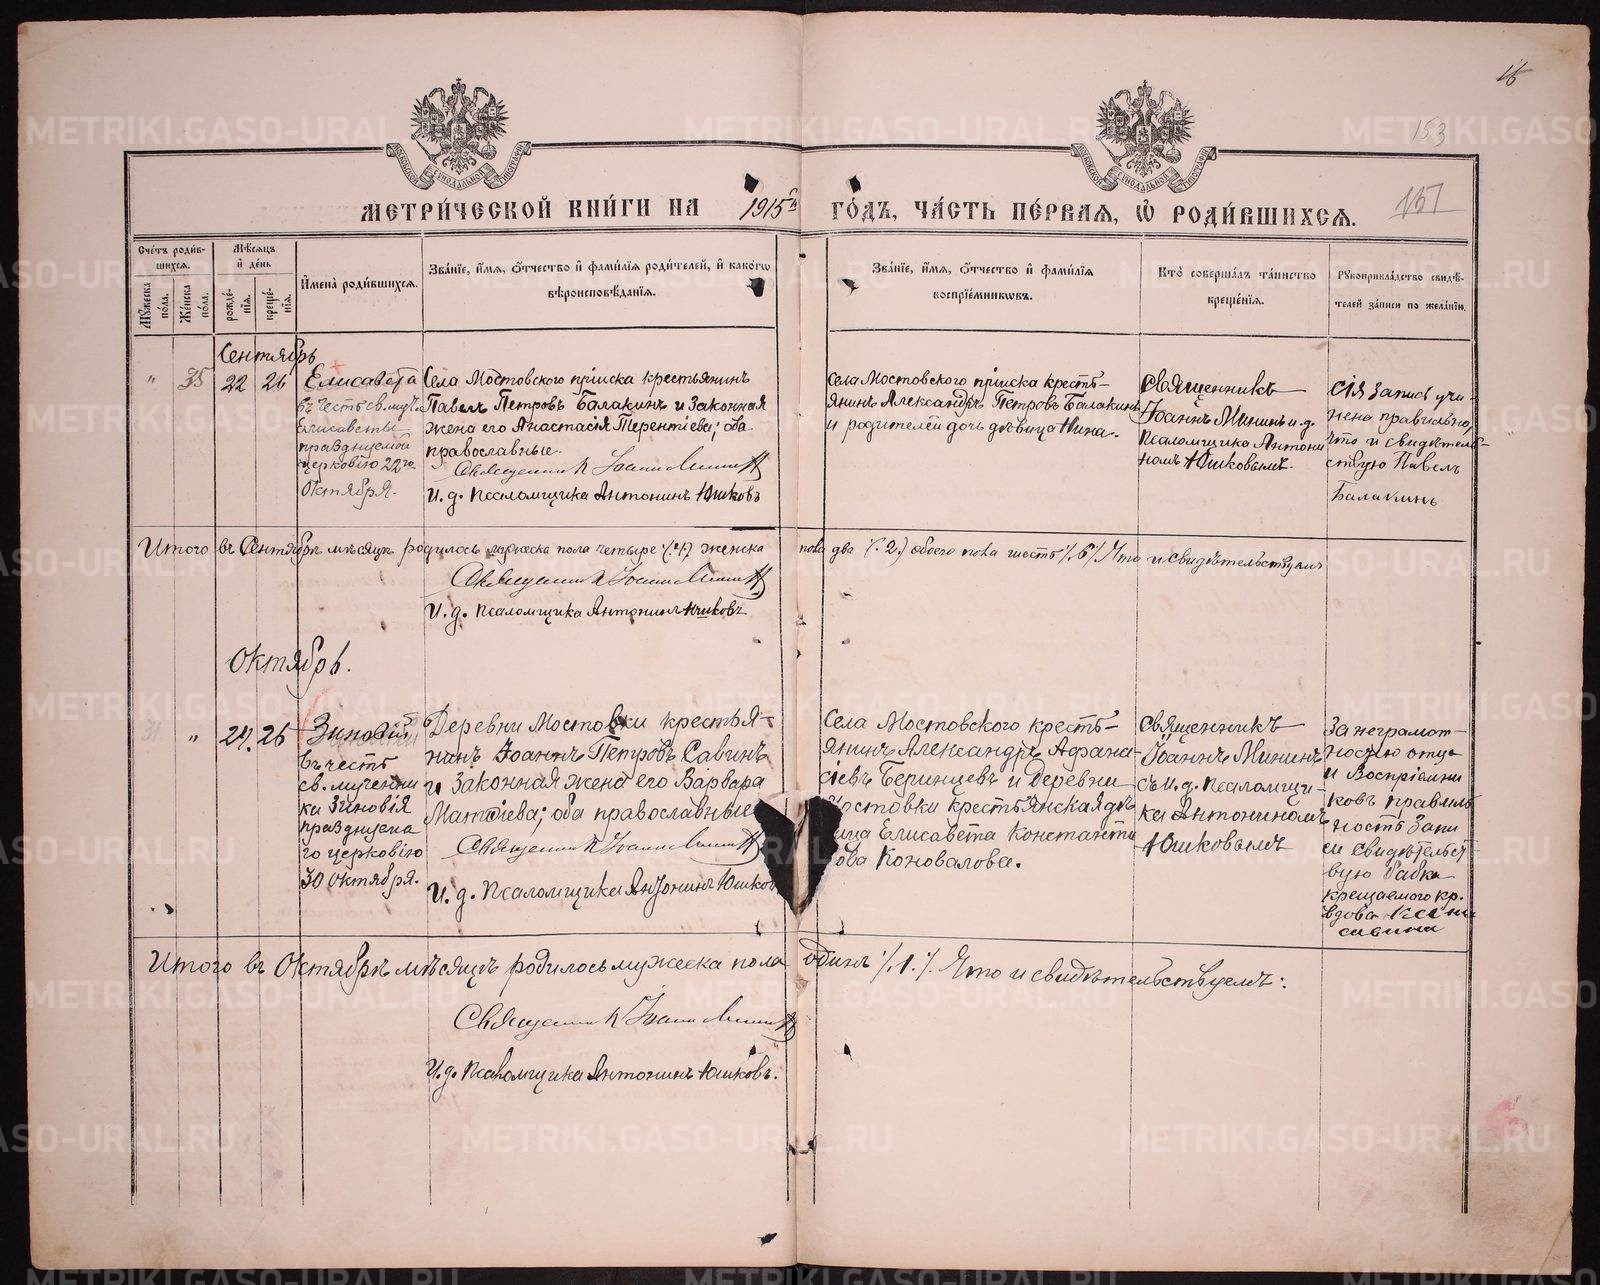 16
153
157
МЕТРИ́ЧЕСКОЙ КНИ́ГИ НА 1915й ГО́ДЪ, ЧА́СТЬ ПЕ́РВАѦ, Ѡ РОДИ́ВШИХСѦ.
Сче́тъ роди́вшихсѧ.
Мꙋ́жеска по́ла.
Же́нска по́ла.
Мѣ́сѧцъ и҆ де́нь
рожде́нїѧ.
креще́нїѧ.
И҆мена̀ роди́вшихсѧ.
Зва́нїе, и҆́мѧ, ѻ҆́тчество и҆ фами́лїѧ роди́телей, и҆ како́гѡ
вѣроисповѣ́данїѧ.
Зва́нїе, и҆́мѧ, ѻ҆́тчество и҆ фами́лїѧ
воспрїе́мникѡвъ.
Кто̀ соверша́лъ та́инство
креще́нїѧ.
Рꙋкоприкла́дство свидѣ́-
телей за́писи по жела́нїю.
Сентябрь
" 35 22 26
Елисавета
въ честь св. муч.
Елисаветы
празднуемой
церковію 22го
Октября.
Села Мостовского пріиска крестьянинъ
Павелъ Петровъ Балакинъ и законная
жена его Анастасія Терентіева; оба
православные.
Священникъ Іоаннъ Мининъ
И. д. псаломщика Антонинъ Юшковъ
Села Мостовского пріиска кресть-
янинъ Александръ Петровъ Балакинъ
и родителей дочь дѣвица Нина.
Священникъ
Іоаннъ Мининъ и. д.
псаломщика Антони
номъ Юшковымъ.
Сія запись учи-
нена правильно,
что и свидѣтель-
ствую Павелъ
Балакинъ
Итого въ Сентябрѣ мѣсяцѣ родилось мужеска пола четыре (4) женска пола два (.2.) обоего пола шесть /.6/. Что и свидѣтельствуемъ
Священникъ Іоаннъ Мининъ
И. д. псаломщика Антонинъ Юшковъ
Октябрь.
31 " 24. 25
Зиновій
въ честь
св. мучени
ка Зиновія
празднуема
го церковію
30 Октября.
Деревни Мостовки крестья-
нинъ Іоаннъ Петровъ Савинъ
и законная жена его Варвара
Матѳіева; оба православные
Священникъ Іоаннъ Мининъ
И. д. Псаломщика Антонинъ Юшков
Села Мостовского кресть-
янинъ Александръ Афана-
сіевъ Беринцевъ и деревни
Мостовки крестьянская дѣ
вица Елисавета Константи
нова Коновалова.
Священникъ
Іоаннъ Мининъ
съ и. д. псаломщи-
ка Антониномъ
Юшковымъ
За неграмот-
ностью отца
и воспріемни
ковъ правиль
ность запи
си свидѣтельст
вую бабка
крещаемого кр.
вдова
Савина
Итого въ Октябрѣ мѣсяцѣ родилось мужеска пола одинъ /.1./. Что и свидѣтельствуемъ:
Священникъ Іоаннъ Мининъ
И. д. Псаломщика Антонинъ Юшковъ.
METRIKI.GASO-URAL.RU